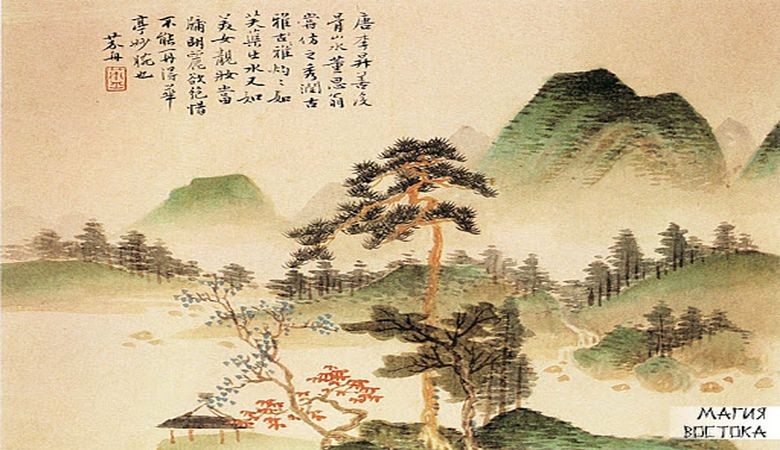 唐李昇善
青山水董思翁
嘗仿之秀潤古
雅古雅灼〻如
芙蕖出水又如
美女靚妝當
牖胡麗欲絕惜
不能再得華
亭妙腕也
МАГИЯ
ВОСТОКА